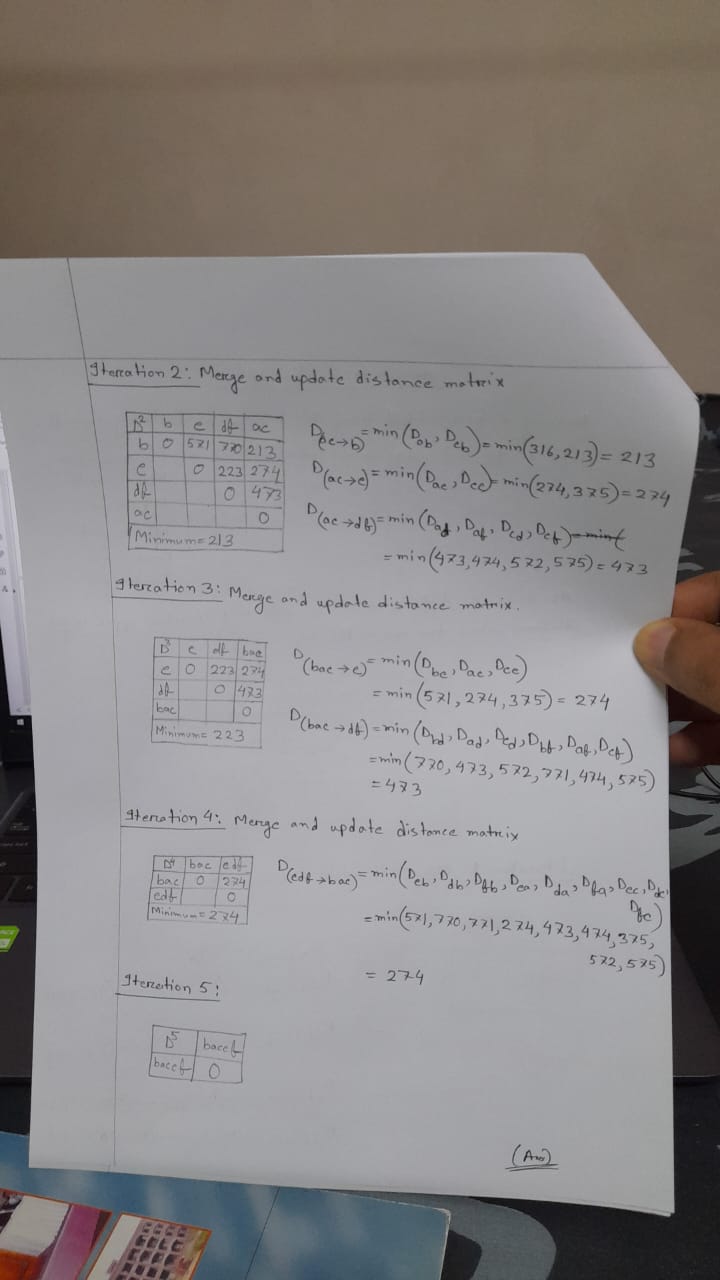 Iteration 2: Merge and update distance matrix
D² b e df ac
b 0 571 770 213
e 0 223 274
df 0 473
ac 0
Minimum = 213
D(ac→b) = min(Dab, Dcb) = min(316, 213) = 213
D(ac→e) = min(Dae, Dce) = min(274, 375) = 274
D(ac→df) = min(Dad, Daf, Dcd, Dcf)
= min(473, 474, 572, 575) = 473
Iteration 3: Merge and update distance matrix.
D³ e df bac
e 0 223 274
df 0 473
bac 0
Minimum = 223
D(bac→e) = min(Dbe, Dae, Dce)
= min(571, 274, 375) = 274
D(bac→df) = min(Dbd, Dad, Dcd, Dbf, Daf, Dcf)
= min(770, 473, 572, 771, 474, 575)
= 473
Iteration 4: Merge and update distance matrix
D⁴ bac edf
bac 0 274
edf 0
Minimum = 274
D(edf→bac) = min(Deb, Ddb, Dfb, Dea, Dda, Dfa, Dec, Ddc,
Dfc)
= min(571, 770, 771, 274, 473, 474, 375,
572, 575)
= 274
Iteration 5:
D⁵
0
(Ans)